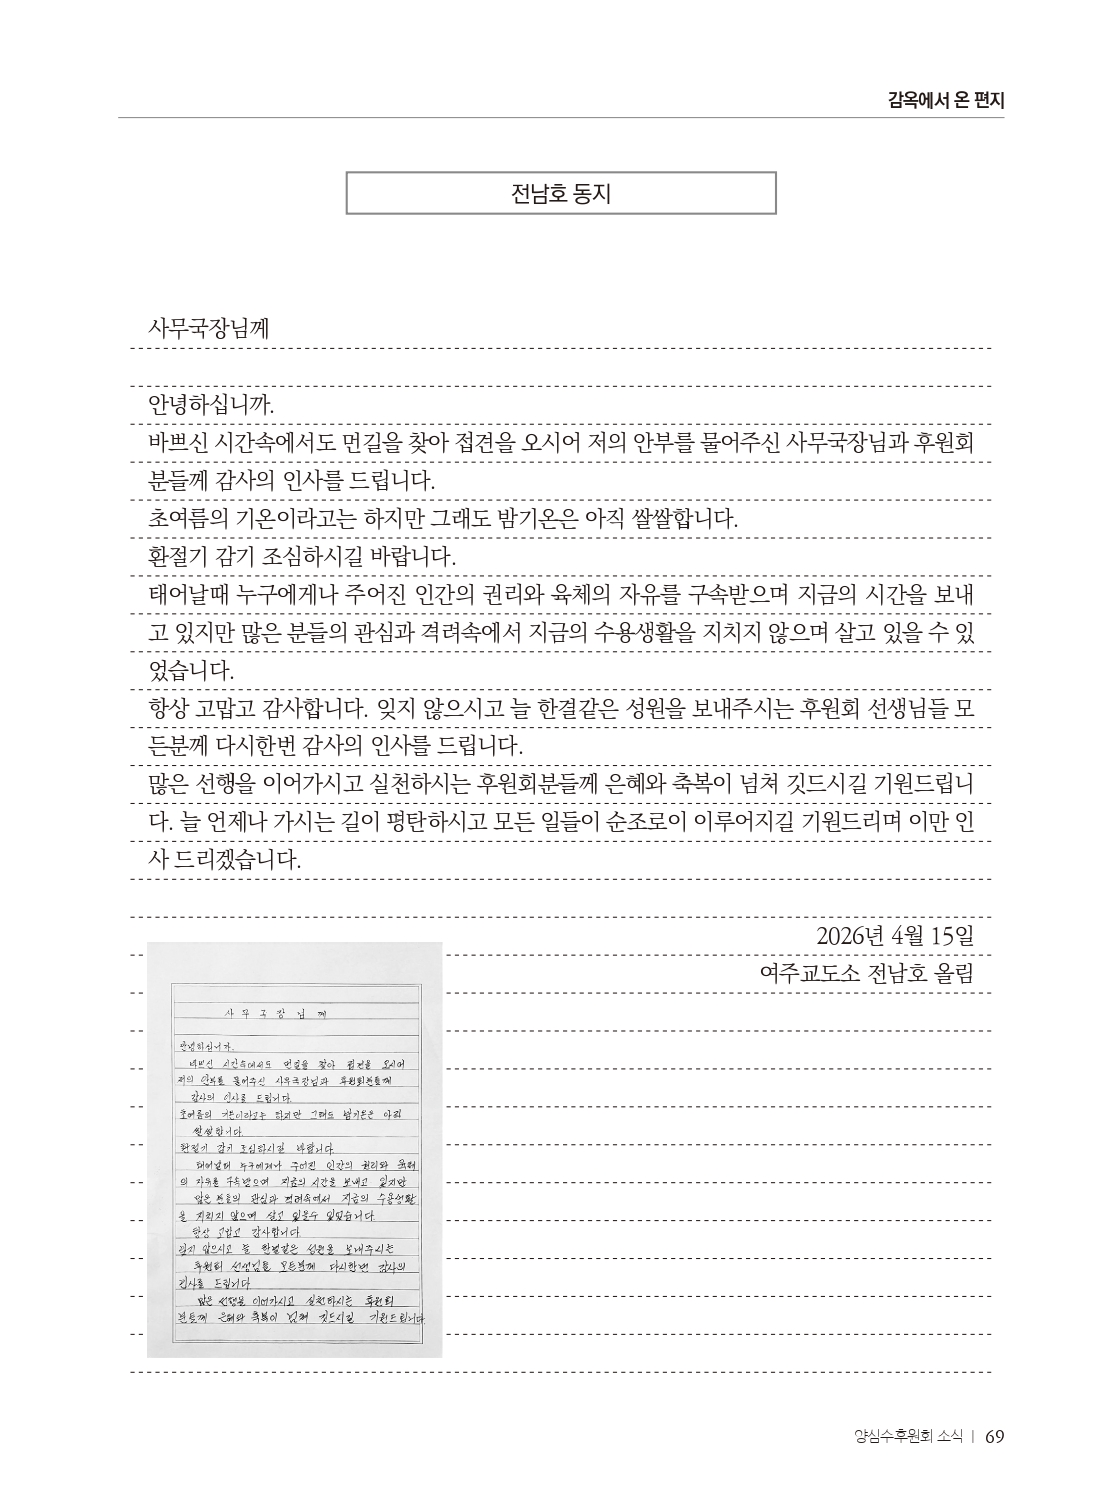 감옥에서 온 편지
전남호 동지
사무국장님께
안녕하십니까.
바쁘신 시간속에서도 먼길을 찾아 접견을 오시어 저의 안부를 물어주신 사무국장님과 후원회
분들께 감사의 인사를 드립니다.
초여름의 기온이라고는 하지만 그래도 밤기온은 아직 쌀쌀합니다.
환절기 감기 조심하시길 바랍니다.
태어날때 누구에게나 주어진 인간의 권리와 육체의 자유를 구속받으며 지금의 시간을 보내
고 있지만 많은 분들의 관심과 격려속에서 지금의 수용생활을 지치지 않으며 살고 있을 수 있
었습니다.
항상 고맙고 감사합니다. 잊지 않으시고 늘 한결같은 성원을 보내주시는 후원회 선생님들 모
든분께 다시한번 감사의 인사를 드립니다.
많은 선행을 이어가시고 실천하시는 후원회분들께 은혜와 축복이 넘쳐 깃드시길 기원드립니
다. 늘 언제나 가시는 길이 평탄하시고 모든 일들이 순조로이 이루어지길 기원드리며 이만 인
사 드리겠습니다.
2026년 4월 15일
여주교도소 전남호 올림
사무국장님께
안녕하십니까.
바쁘신 시간속에서도 먼길을 찾아 접견을 오시어
저의 안부를 물어주신 사무국장님과 후원회분들께
감사의 인사를 드립니다.
초여름의 기온이라고는 하지만 그래도 밤기온은 아직
쌀쌀합니다.
환절기 감기 조심하시길 바랍니다.
태어날때 누구에게나 주어진 인간의 권리와 육체
의 자유를 구속받으며 지금의 시간을 보내고 있지만
많은 분들의 관심과 격려속에서 지금의 수용생활
을 지치지 않으며 살고 있을수 있었습니다.
항상 고맙고 감사합니다.
잊지 않으시고 늘 한결같은 성원을 보내주시는
후원회 선생님들 모든분께 다시한번 감사의
인사를 드립니다
많은 선행을 이어가시고 실천하시는 후원회
분들께 은혜와 축복이 넘쳐 깃드시길 기원드립니다
양심수후원회 소식 | 69